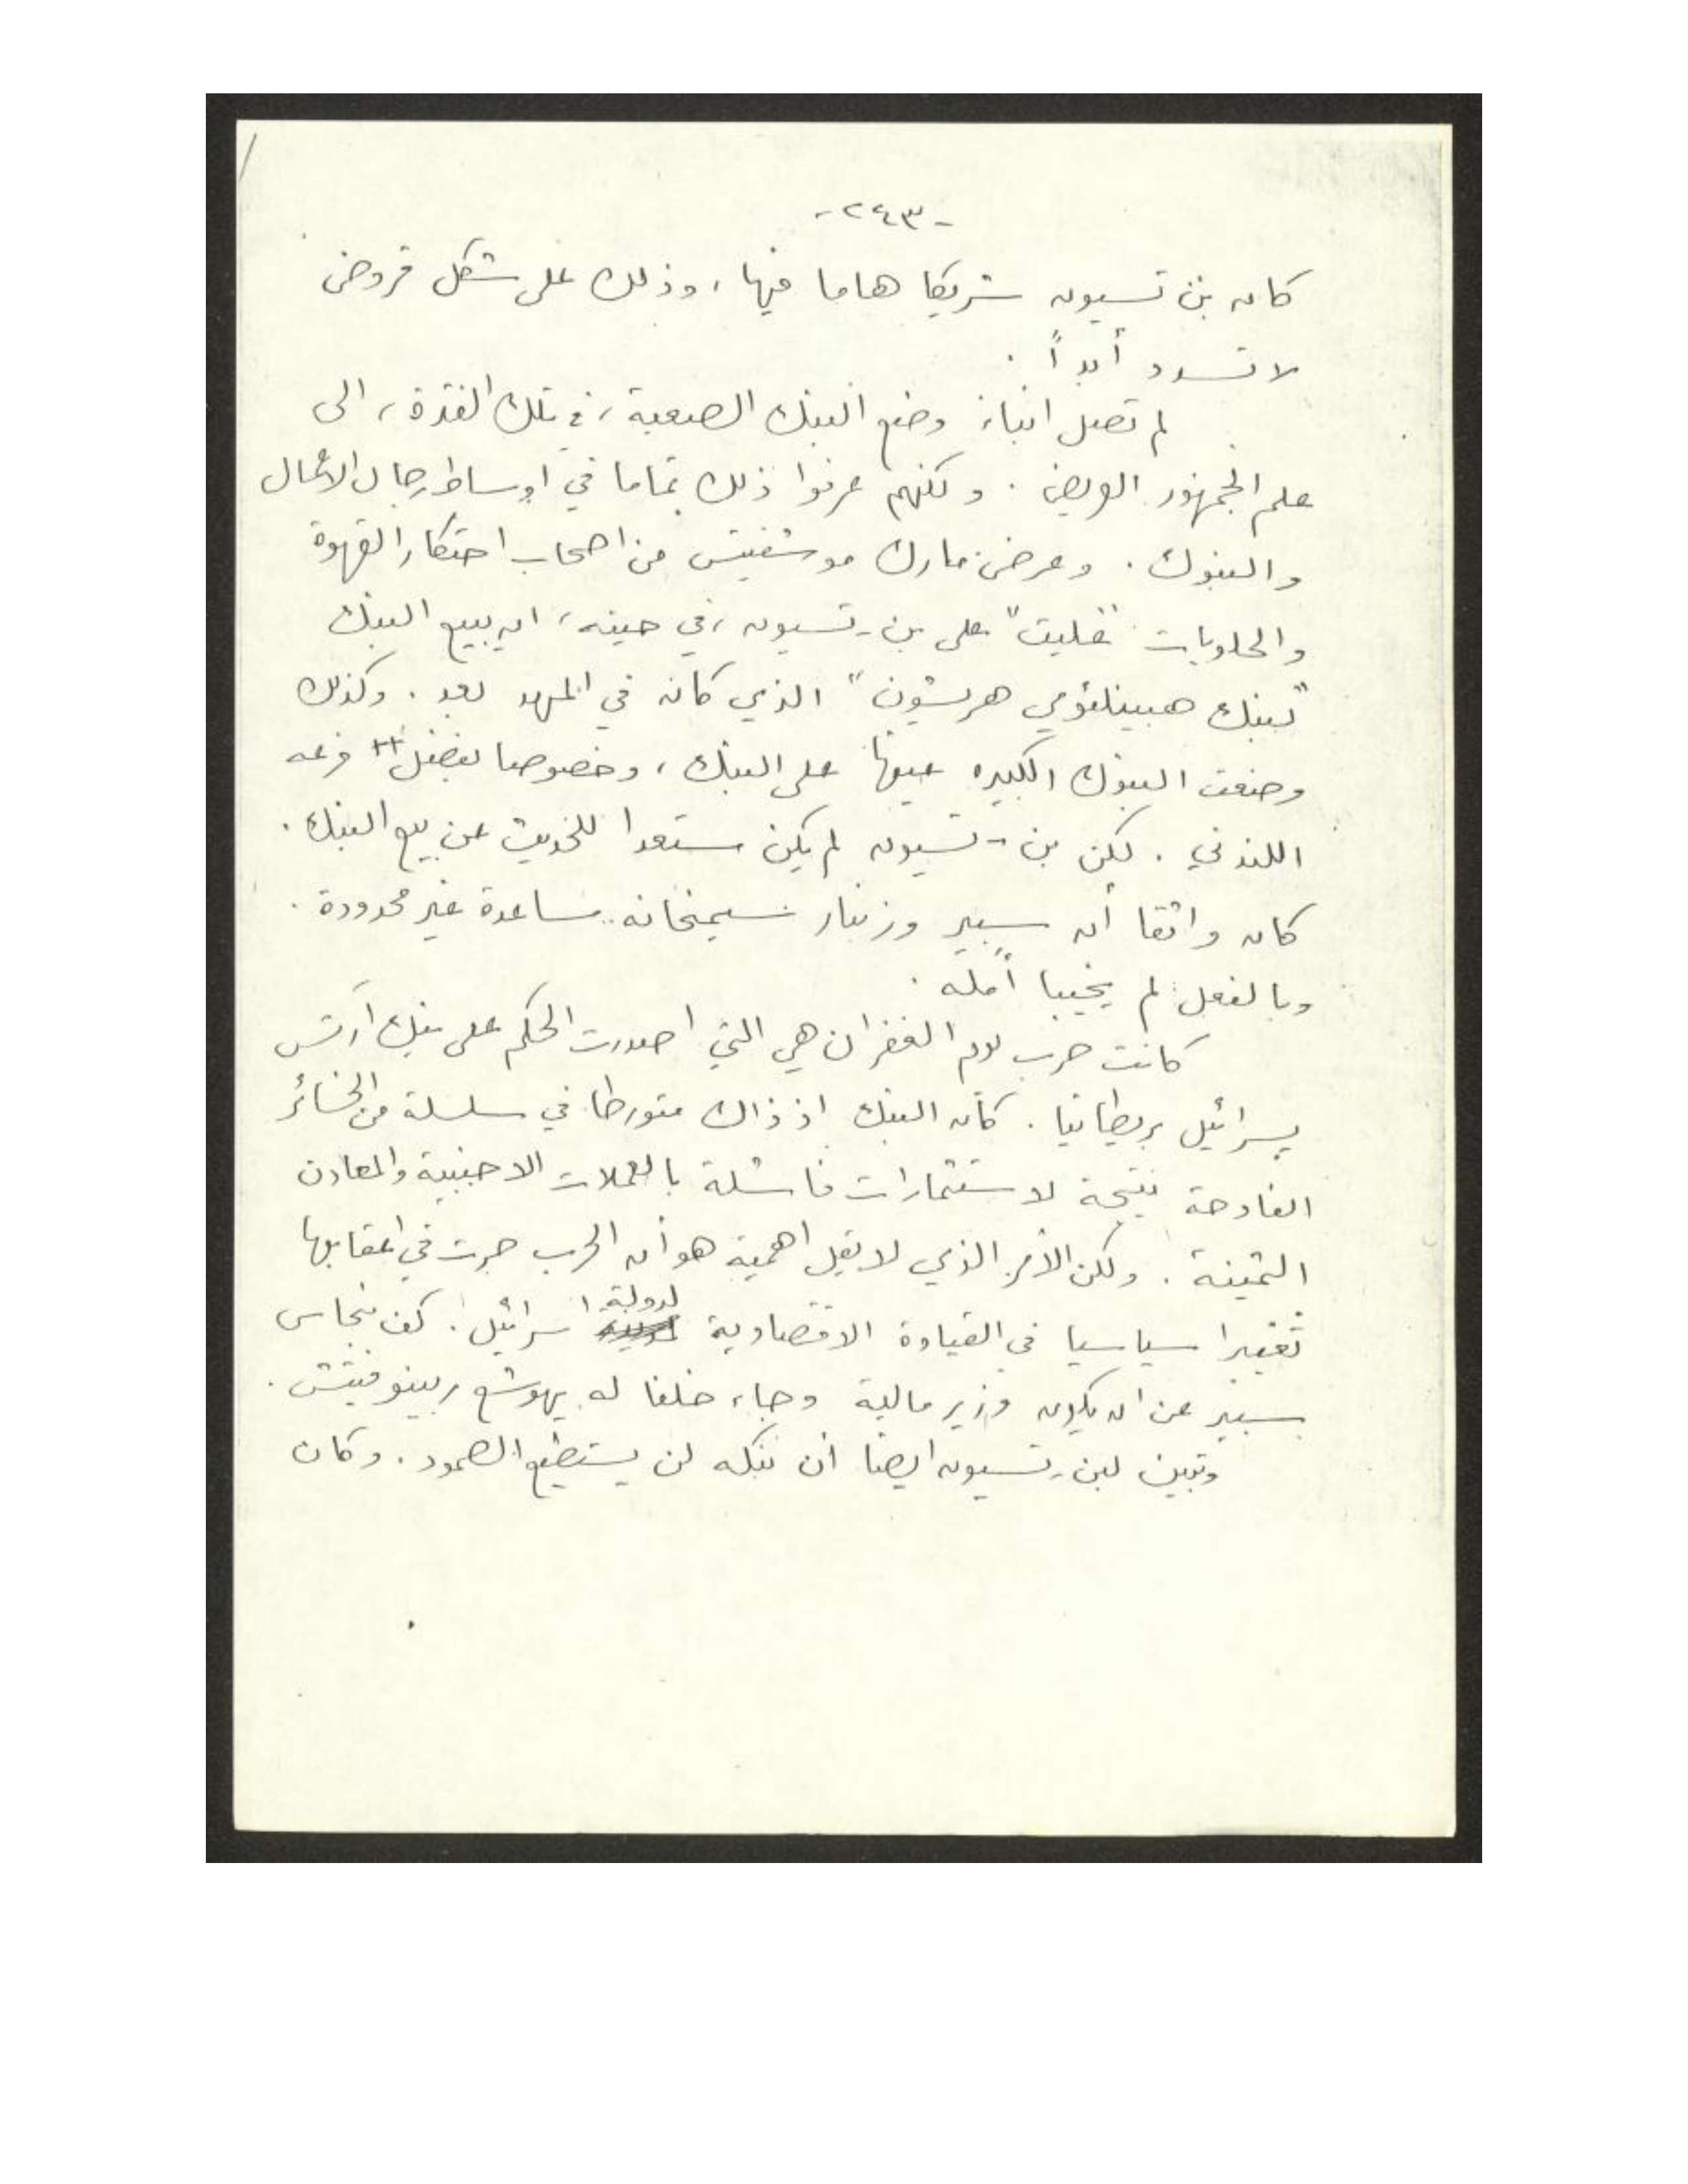 -٢٤٣-
كان بن تسيون شريكا هاما فيها، وذلك على شكل قروض
لا تسدد أبداً.
لم تصل انباء وضع البنك الصعبة، في تلك الفترة، الى
علم الجمهور العريض. ولكنهم عرفوا ذلك تماما في اوساط رجال الأعمال
والبنوك. وعرض مارك موشفيتس من اصحاب احتكار القهوة
والحلويات "عليت" على بن-تسيون، في حينه، ان يبيع البنك
"لبنك هبينلئومي هريشون" الذي كان في المهد بعد. وكذلك
وضعت البنوك الكبيره عيونها على البنك، وخصوصا بفضل فرعه
اللندني. لكن بن-تسيون لم يكن مستعدا للحديث عن بيع البنك.
كان واثقا أن سبير وزنبار سيمنحانه مساعدة غير محدودة.
وبالفعل لم يخيبا أمله.
كانت حرب يوم الغفران هي التي اصدرت الحكم على بنك آرتس
يسرائيل بريطانيا. كان البنك اذ ذاك متورطا في سلسلة من الخسائر
الفادحة نتيجة لاستثمارات فاشلة بالعملات الاجنبية والمعادن
الثمينة. ولكن الأمر الذي لا يقل اهمية هو أن الحرب جرت في اعقابها
تغييرا سياسيا في القيادة الاقتصادية لدولة اسرائيل. كف بنحاس
سبير عن ان يكون وزير مالية وجاء خلفا له يهوشع ربينوفيتش.
وتبين لبن-تسيون ايضا أن بنكه لن يستطيع الصمود. وكان